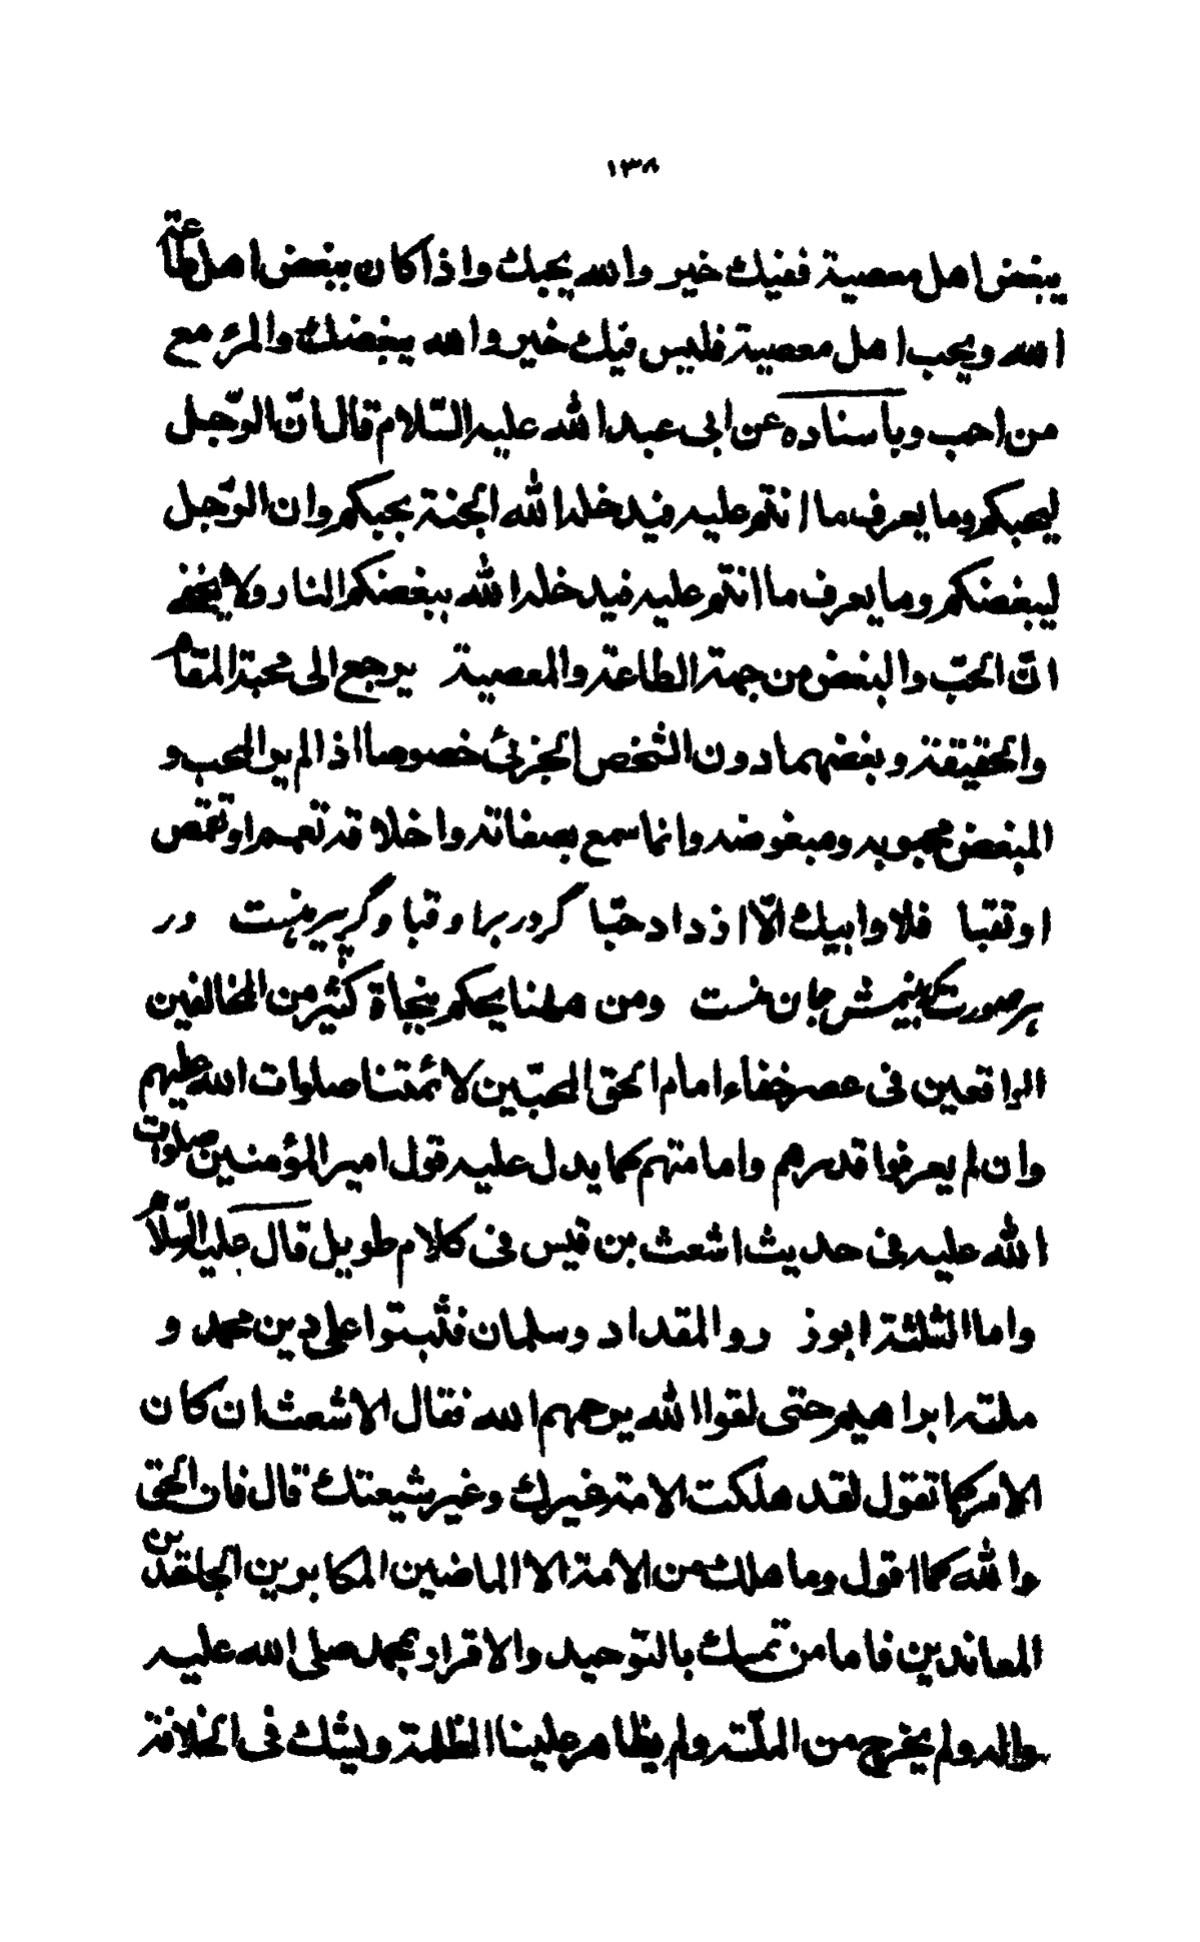 ١٣٨
يبغض اهل معصية ففيك خير والله يحبك واذا كان يبغض اهل طاعة
الله ويحب اهل معصية فليس فيك خير والله يبغضك والمرء مع
من احب وبأسناده عن ابى عبد الله عليه السّلام قال انّ الرّجل
ليحبكم وما يعرف ما انتم عليه فيدخله الله الجنة بحبكم وان الرّجل
ليبغضكم وما يعرف ما انتم عليه فيدخله الله ببغضكم النار ولا يخفى
انّ الحبّ والبغض من جهة الطاعة والمعصية يرجع الى محبة المقام
والحقيقة وبغضهما دون الشخص الجزئى خصوصا اذا لم ير المحب و
المبغض محبوبه ومبغوضه وانما سمع بصفاته واخلاقه تعمم او تقمص
او تقبا فلا وابيك الّا ازداد حبّا گر در برا و قبا و گر پیرهنست در
هر صورت که بینمش جان منست ومن هاهنا يحكم بنجاة كثير من المخالفين
الواقعين فى عصر خفاء امام الحق المحبّين لائمتنا صلوات الله عليهم
وان لم يعرفوا قدرهم وامامتهم كما يدل عليه قول امير المؤمنين صلوات
الله عليه فى حديث اشعث بن قيس فى كلام طويل قال عليه السّلام
واما الثلثة ابوذ ر والمقداد وسلمان فثبتوا على دين محمد و
ملته ابراهيم حتى لقوا الله يرحمهم الله فقال الاشعث ان كان
الامر كما تقول لقد هلكت الامة غيرك وغير شيعتك قال فان الحق
والله كما اقول وما هلك من الأمة الا الماضين المكابرين الجاحدين
المعاندين فاما من تمسك بالتوحيد والاقرار بمحمد صلى الله عليه
واله ولم يخرج من الملّة ولم يظاهر علينا الظلمة ويشك فى الخلافة